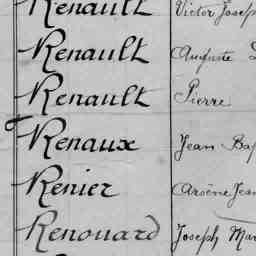 Renault Victor Josep
Renault Auguste
Renault Pierre
Renaux Jean Bap
Renier Arsène Jean
Renouard Joseph Mar